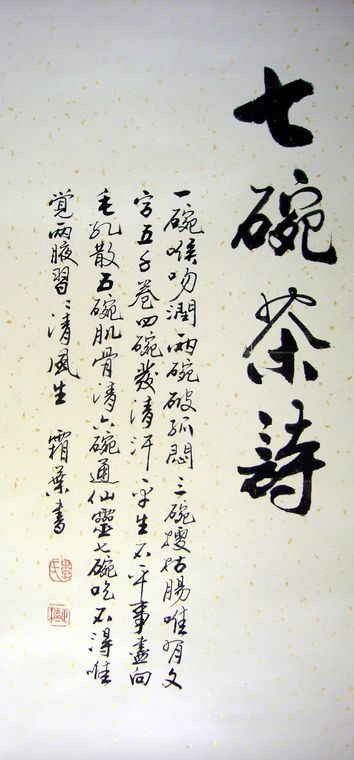 七碗茶詩
一碗喉吻潤两碗破孤悶三碗搜枯腸唯有文
字五千卷四碗發清汗平生不平事盡向
毛孔散五碗肌骨清六碗通仙靈七碗吃不得唯
覚两腋習〻清風生 霜葉書